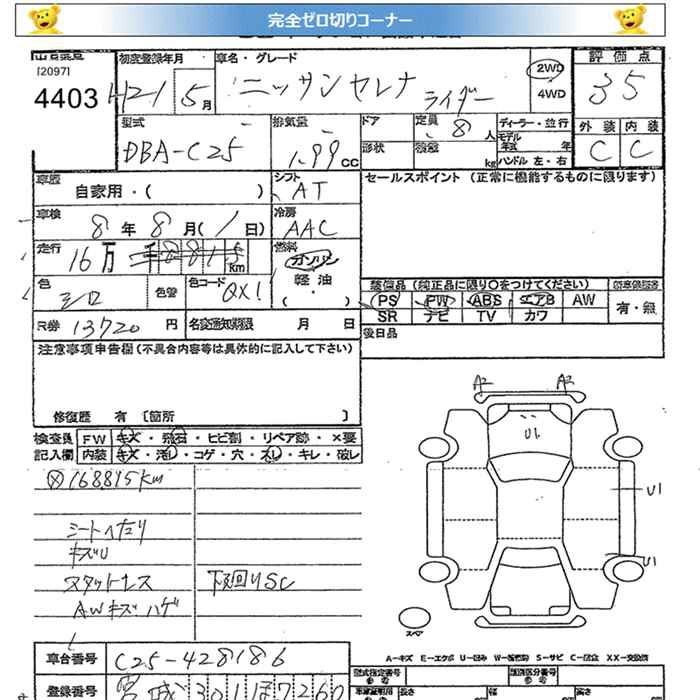 完全ゼロ切りコーナー
[2097]
4403
初度登録年月
H21 5月
車名・グレード
ニッサン セレナ ライダー
2WD
4WD
評価点
3.5
型式
DBA-C25
排気量
1.99 CC
ドア
形状
定員
8人
積載
kg
ディーラー・並行
モデル年式 年
ハンドル 左・右
外装 内装
C C
車歴
自家用・( )
シフト
AT
セールスポイント (正常に機能するものに限ります)
車検
8年 8月( 1日)
冷房
AAC
走行
16万 8815 km
燃料
ガソリン
軽油
・( )
色
シロ
色替
色コード
QX1
装備品 (純正品に限り○をつけてください)
PS PW ABS エアB AW
SR ナビ TV カワ
有・無
R券 13720円
名変通知期限 月 日
後日品
注意事項申告欄(不具合内容等は具体的に記入して下さい)
修復歴 有 [箇所 ]
検査員 FW キズ・飛石・ヒビ割・リペア跡・×要
記入欄 内装 キズ・汚レ・コゲ・穴・スレ・キレ・破レ
168815km
シートへたり
キズU
スタットレス
AWキズハゲ
下回りSC
A2 A2
U1
U1
U1
スペア
A-キズ E-エクボ U-凹み W-板金跡 S-サビ C-腐食 XX-交換済
車台番号 C25-428186
型式指定番号
類別区分番号
登録番号 宮城 301 ほ 7260
長さ 幅 高さ